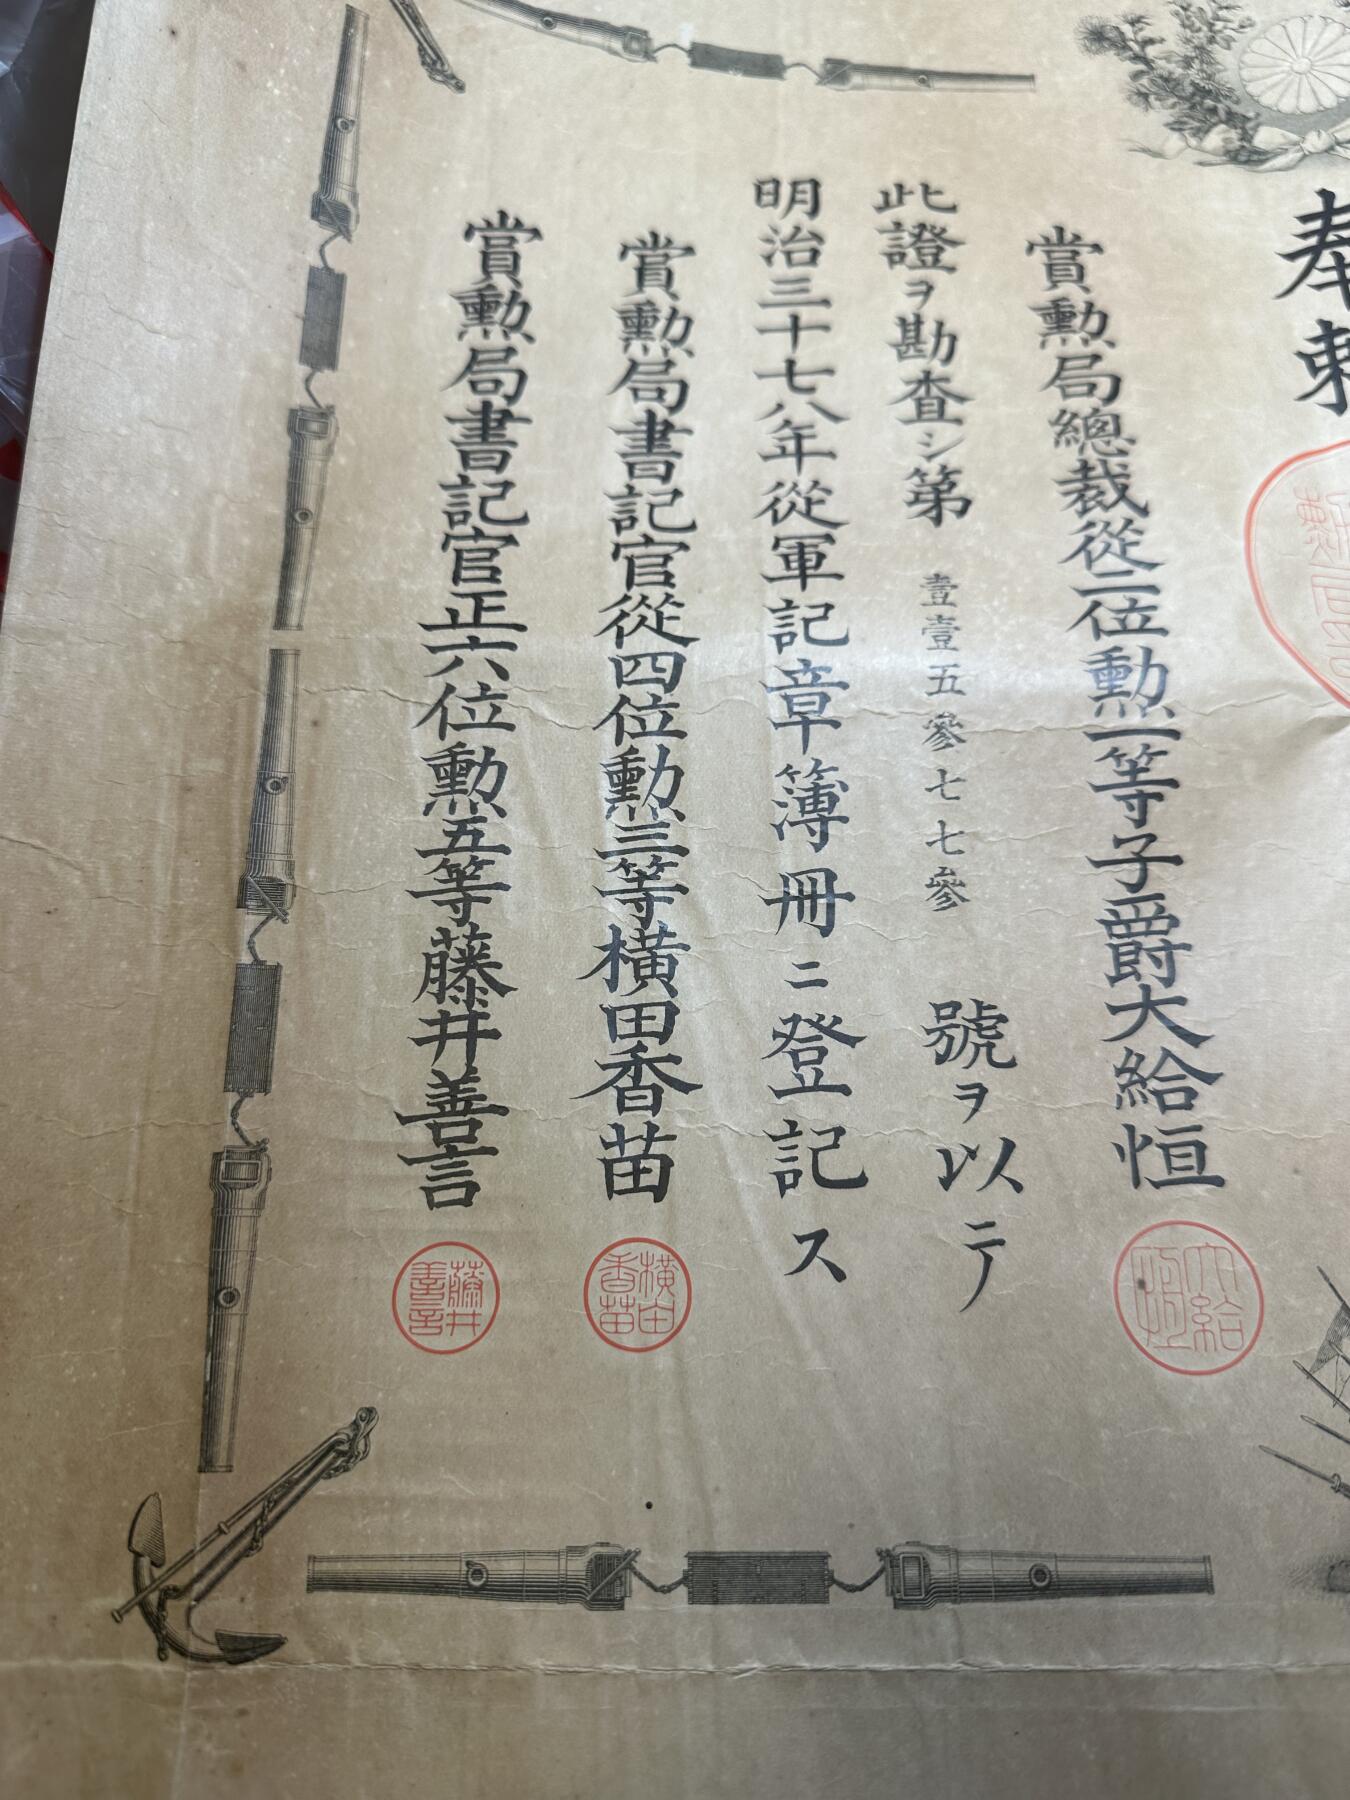 奉
賞勲局總裁從二位勲一等子爵大給恒
大給恒
此證ヲ勘査シ第壹壹五參七七參號ヲ以テ
明治三十七八年從軍記章簿冊ニ登記ス
賞勲局書記官從四位勲三等横田香苗
横田香苗
賞勲局書記官正六位勲五等藤井善言
藤井善言